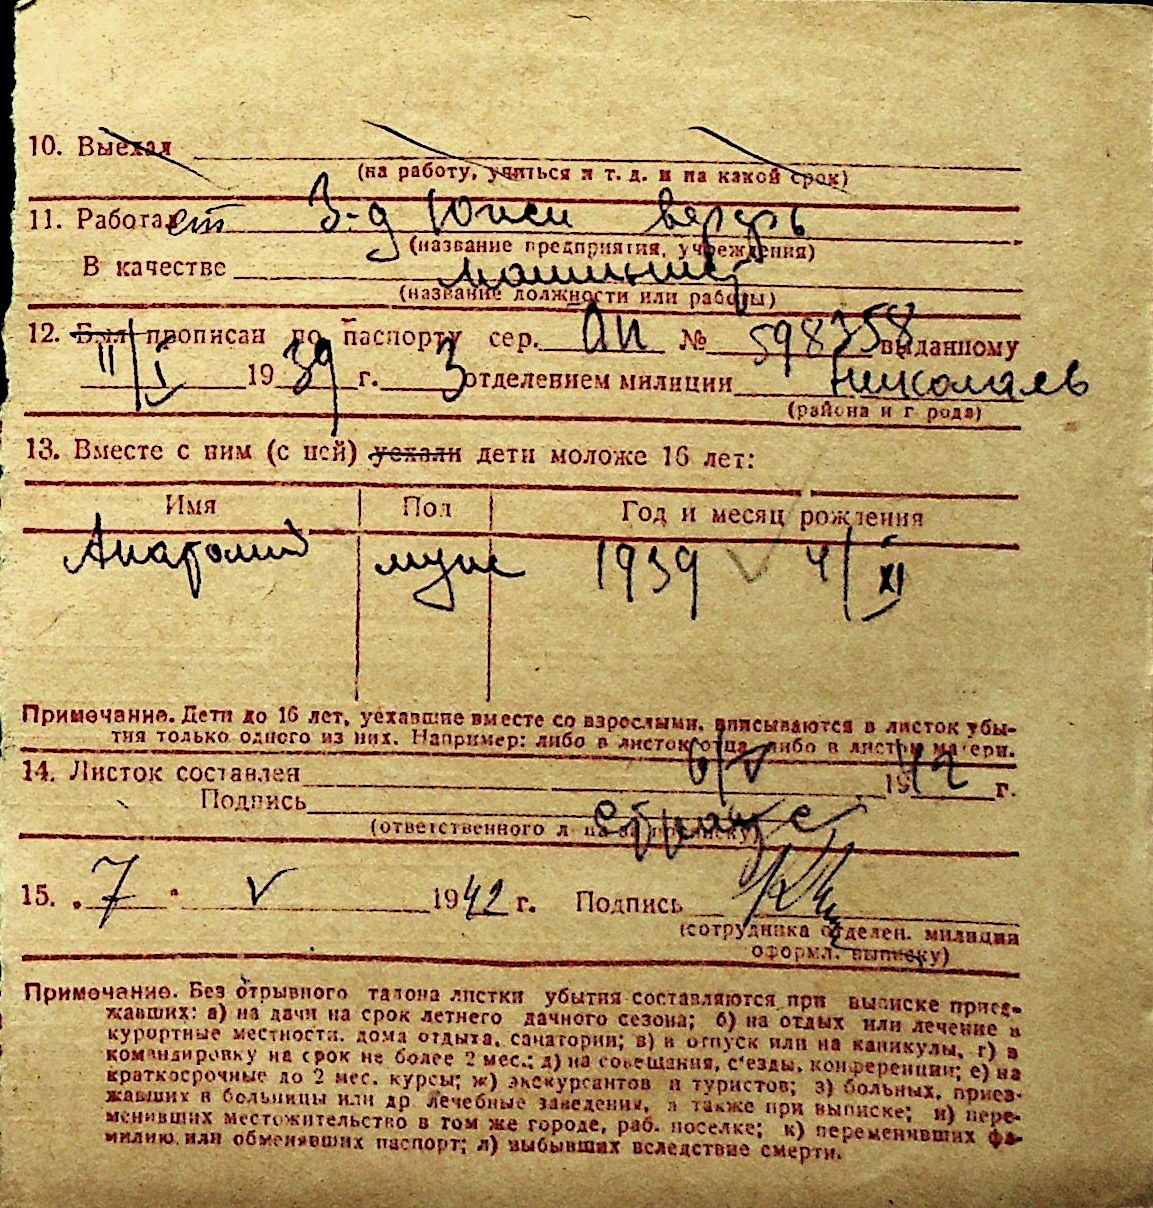 10. Выехал
(на работу, учиться и т. д. и на какой срок)
11. Работает З-д Южн верфь
(название предприятия, учреждения)
В качестве
(название должности или работы)
12. Был прописан по паспорту сер. № 598358 выданному
II/I 1939 г. 3 отделением милиции Николаев
(района и города)
13. Вместе с ним (с ней) уехали дети моложе 16 лет:
Имя Пол Год и месяц рождения
Анатолий муж 1939 4/XI
Примечание. Дети до 16 лет, уехавшие вместе со взрослыми, вписываются в листок убы-
тия только одного из них. Например: либо в листок отца, либо в листок матери.
14. Листок составлен 6/V 1942 г.
Подпись
(ответственного лица за прописку)
15. „7“ V 1942 г. Подпись
(сотрудника отделен. милиции
оформл. выписку)
Примечание. Без отрывного талона листки убытия составляются при выписке приез-
жавших: а) на дачи на срок летнего дачного сезона; б) на отдых или лечение в
курортные местности, дома отдыха, санатории; в) в отпуск или на каникулы, г) в
командировку на срок не более 2 мес.; д) на совещания, с'езды, конференции; е) на
краткосрочные до 2 мес. курсы; ж) экскурсантов и туристов; з) больных, приез-
жавших в больницы или др лечебные заведения, а также при выписке; и) пере-
менивших местожительство в том же городе, раб. поселке; к) переменивших фа-
милию или обменявших паспорт; л) выбывших вследствие смерти.